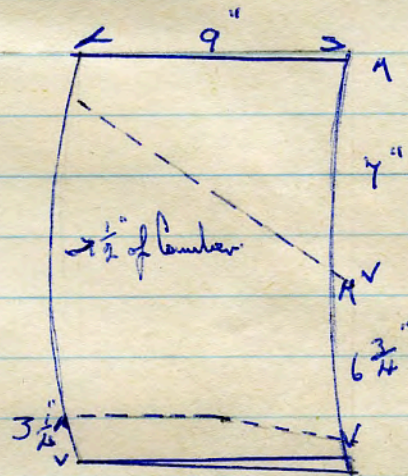 9"
7"
→ 1/2" of Camber
6 3/4"
3 1/4"